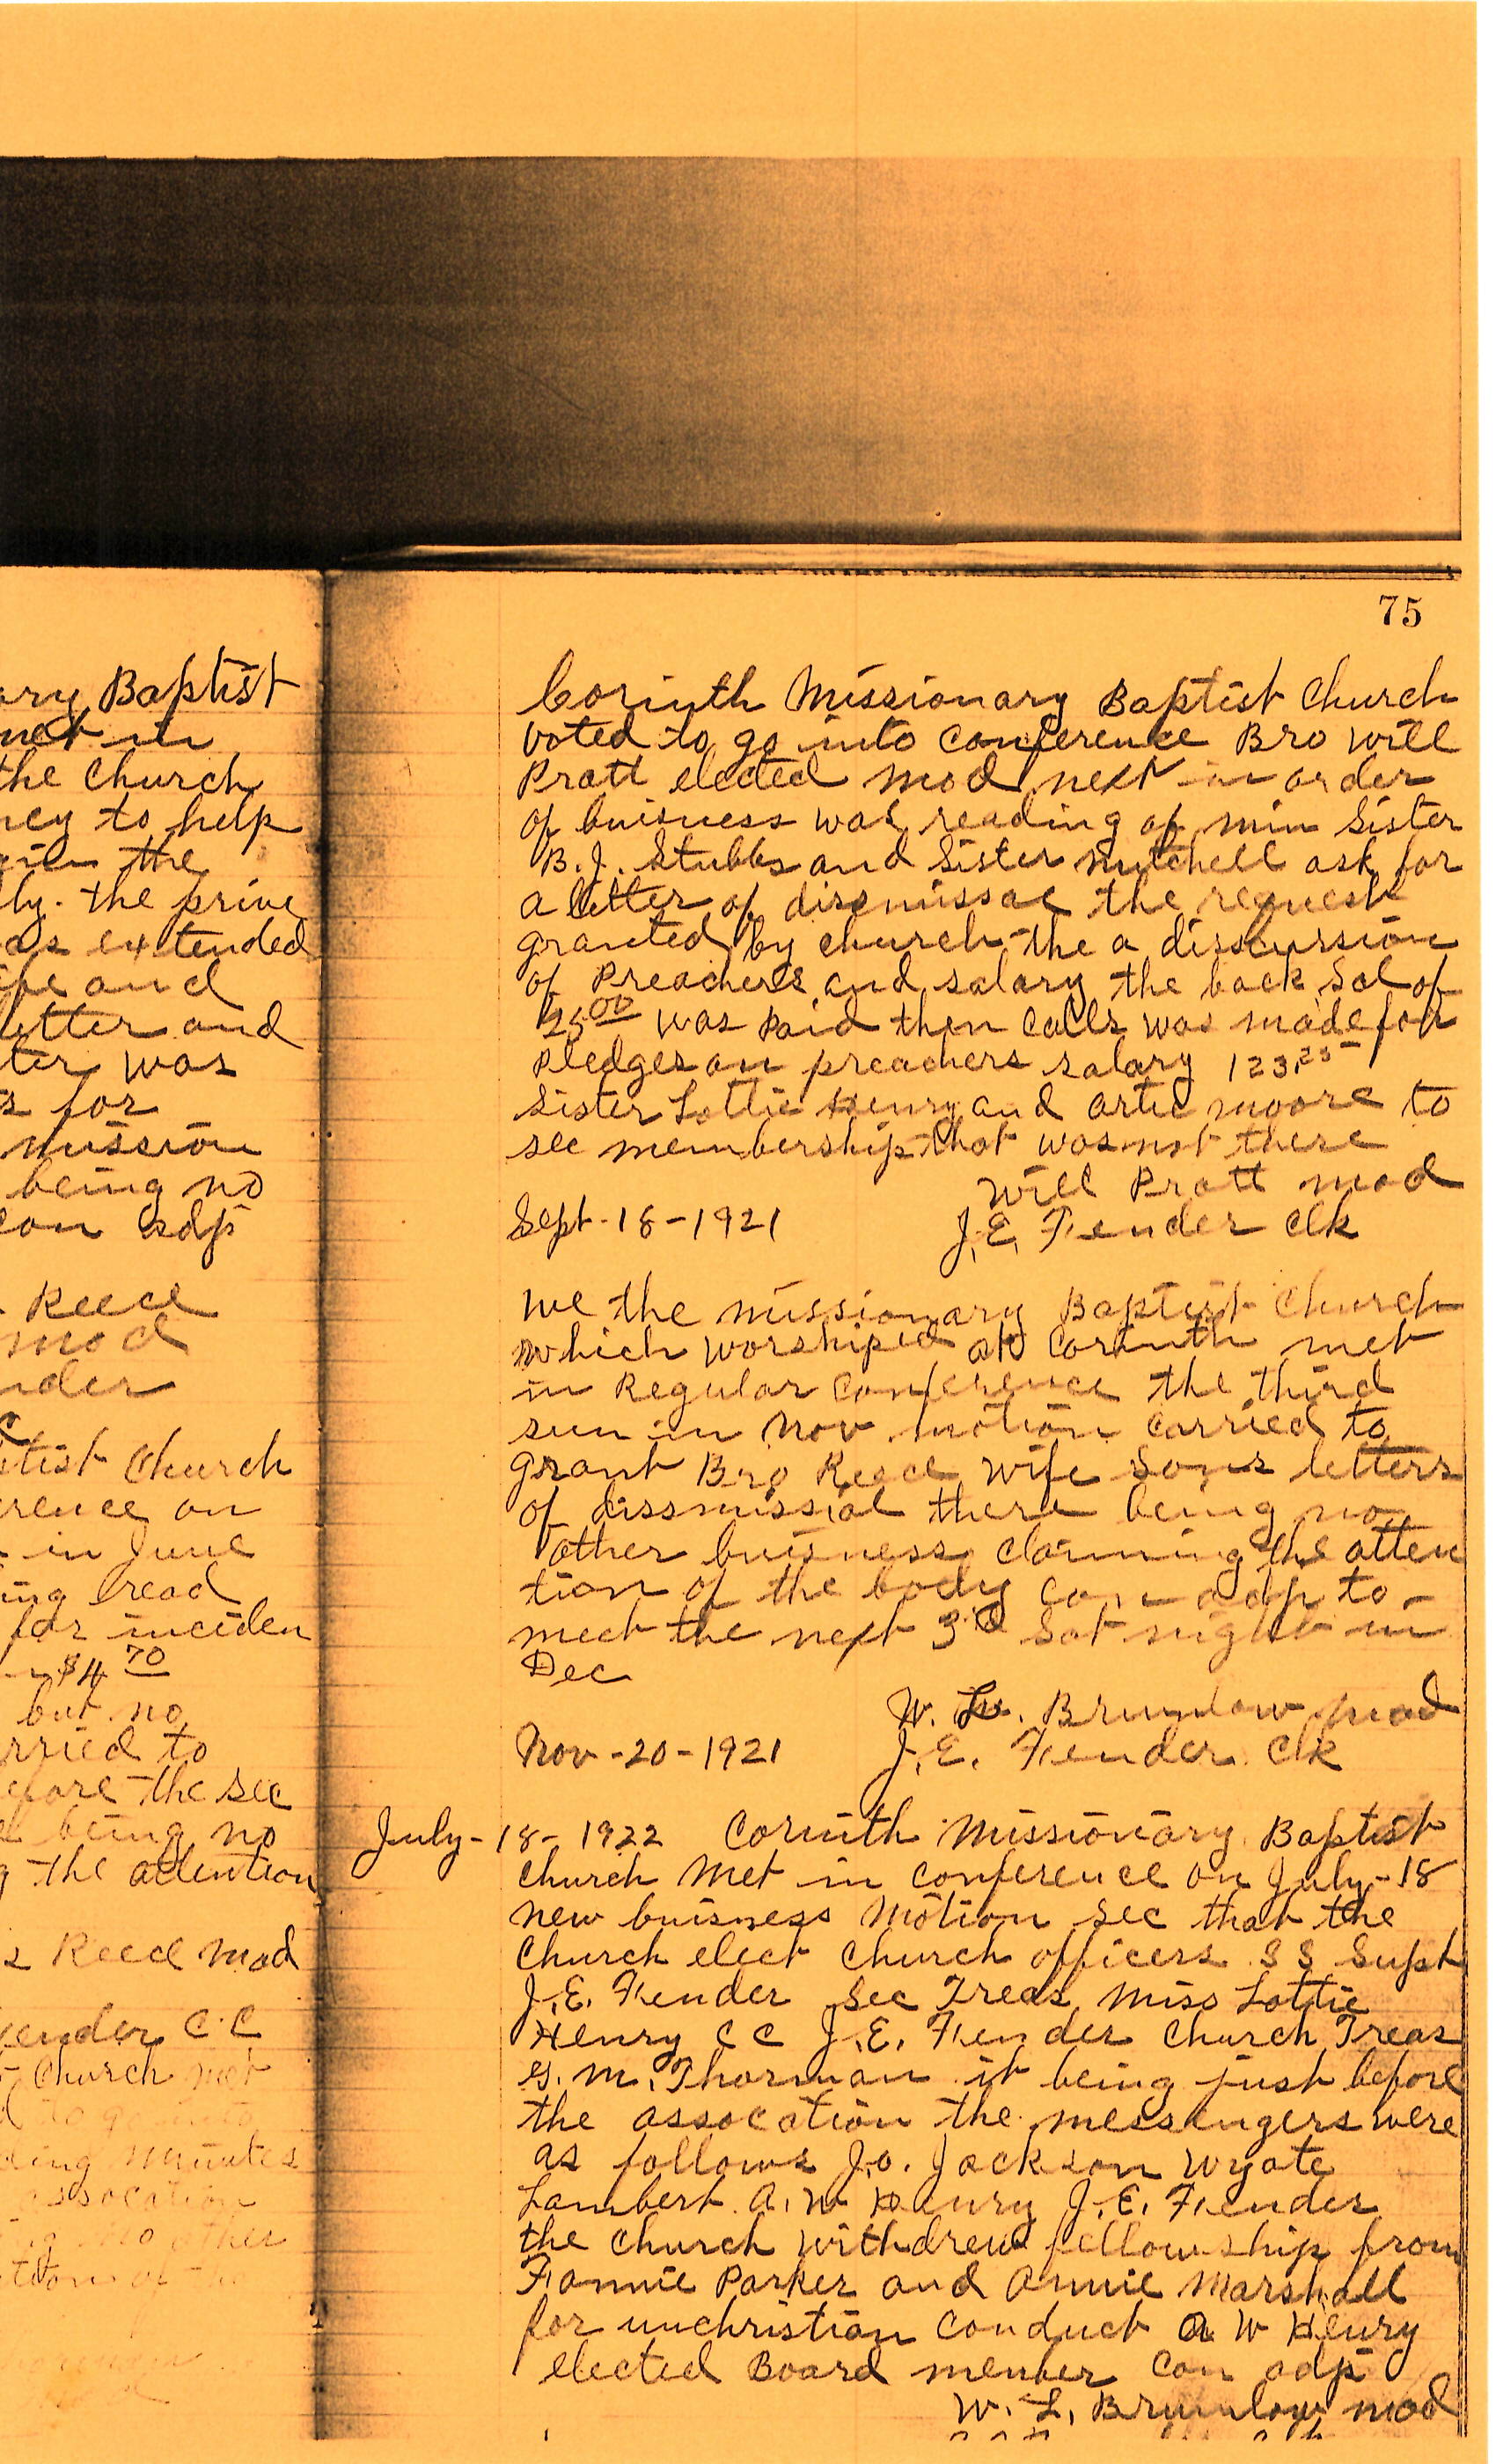 ary Baptist
met in
the Church
ney to help
the
ly. the prive
as extended
ife and
letter and
ter was
s for
mission
being no
con adjs
Reece
mod
nder
tist Church
erence on
in June
ing read
for inciden
$4 70
but no
rried to
efore the sec
being no
g the attention
s Reece mod
ender C.C
Church met
to go into
ding minutes
assocation
no other
75
Corinth Missionary Baptist Church
voted to go into conference Bro Will
Pratt elected mod next in order
of buisness was reading of min Sister
B.J. Stubbs and Sister Mitchell ask for
a letter of dissmissae the request
granted by church the a disscussion
of Preachers and salary the back Sal of
25.00 was paid then calls was made for
Pledges on preachers salary 123.25
Sister Lottie Henry and Artie Moore to
see membership that was not there
Will Pratt mod
Sept-18-1921 J.E. Fender Clk
we the missionary Baptist Church
which worshiped at Corinth met
in Regular conference the third
sun in Nov motion carried to
grant Bro Reece wife Sons letters
of dissmissial there being no
other buisness claiming the atten
tion of the body con adjs to
meet the next 3rd Sat night in
Dec
W. L. Brumlow mod
Nov-20-1921 J.E. Fender Clk
July-18-1922 Corinth Missionary Baptist
Church met in conference on July-18
new buisness motion sec that the
Church elect church officers SS Supt
J.E. Fender Sec Treas Miss Lottie
Henry C C J.E. Fender Church Treas
G.M. Thorman it being just before
the assocation the messengers were
as follows J.O. Jackson Wyate
Lambert A.W Henry J.E. Fender
the Church withdrew fellowship from
Fannie Parker and Annie Marshall
for unchristian conduct A W Henry
elected Board member Con adjs
W. L. Brumlow mod